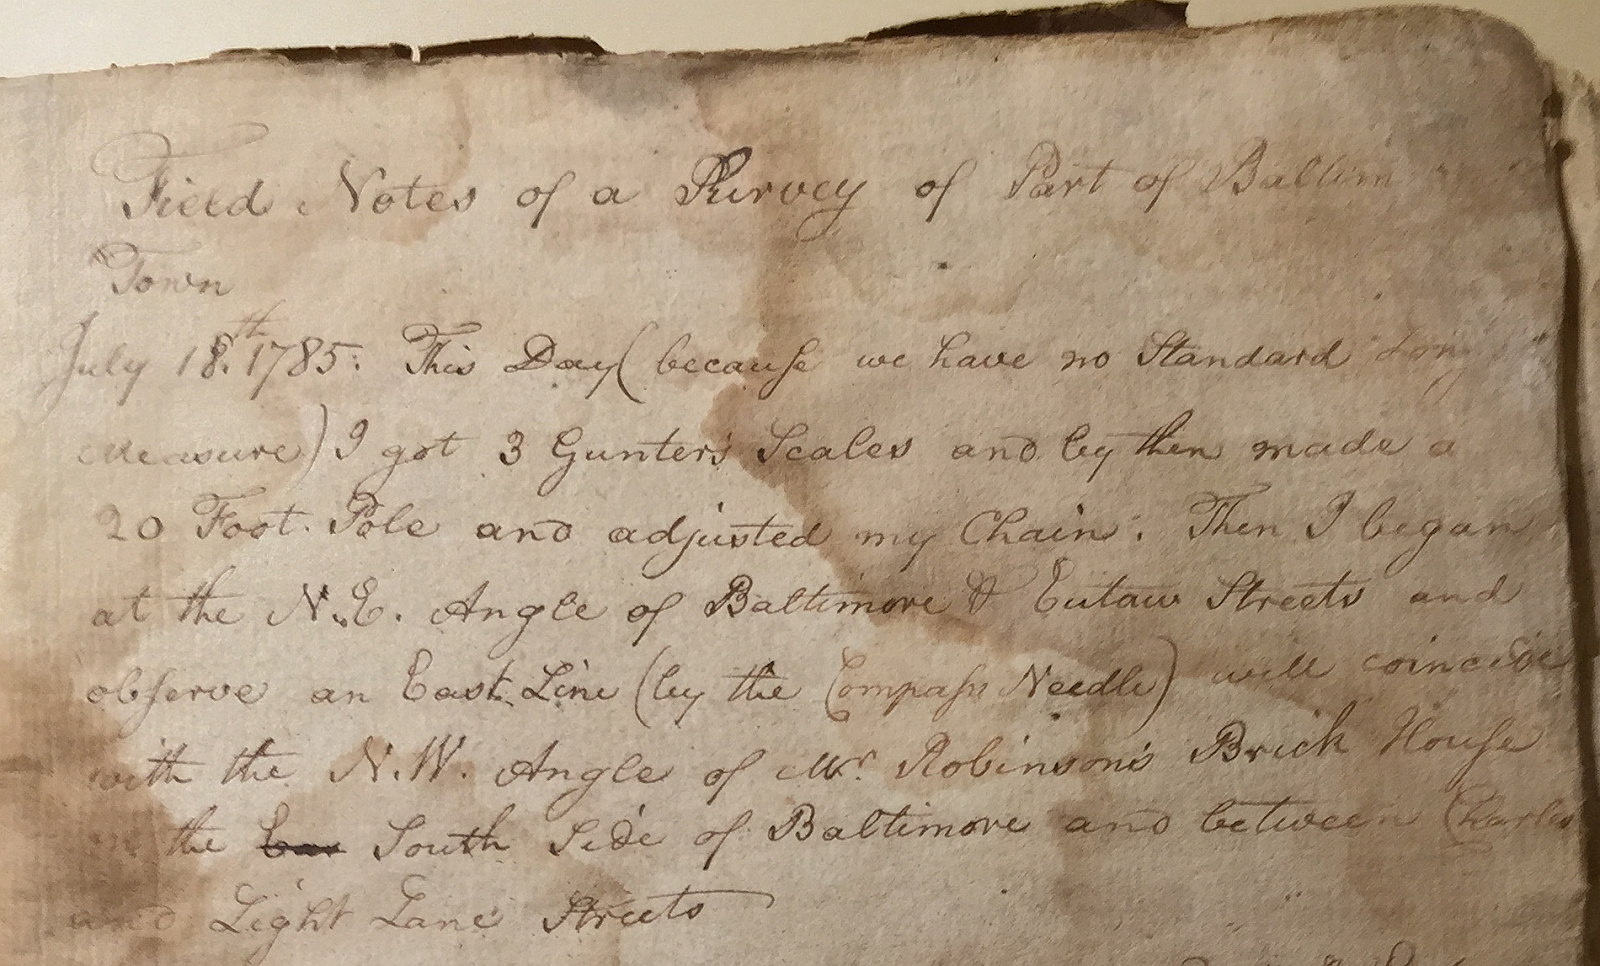 Field Notes of a Survey of Part of Baltim
Town
July 18.th 1785: This Day (because we have no Standard Long
Measure) I got 3 Gunter's Scales and by them made a
20 Foot Pole and adjusted my Chain: Then I began
at the N.E. Angle of Baltimore & Eutaw Streets and
observe an East Line (by the Compass Needle) will coincide
with the N.W. Angle of Mr Robinson's Brick House
on the Eas South Side of Baltimore and between Charles
and Light Lane Streets